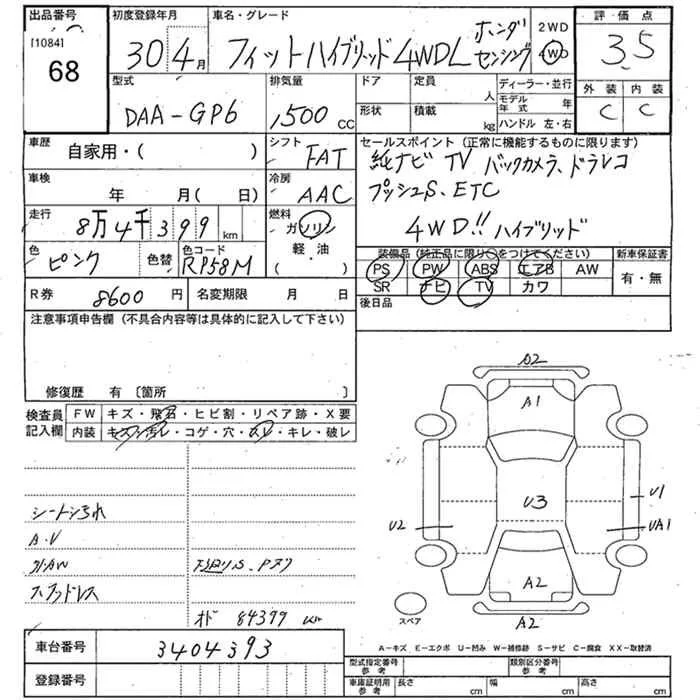 出品番号 初度登録年月 車名・グレード 評価点
[1084]
68
30 4月 フィットハイブリッド4WDL ホンダセンシング 2WD 4WD 3.5
型式 排気量 ドア 定員 人 ディーラー・並行 外装 内装
DAA-GP6 1,500 CC 形状 積載 kg モデル年式 年 C C
ハンドル 左・右
車歴 自家用・( ) シフト FAT セールスポイント (正常に機能するものに限ります)
純ナビ TV バックカメラ、ドラレコ
車検 年 月( 日) 冷房 AAC プッシュS、ETC
走行 8万4千399km 燃料 ガソリン 4WD!! ハイブリッド
軽・油
( ・ )
色 ピンク 色替 色コード RP58M 装備品 (純正品に限り○をつけてください) 新車保証書
PS PW ABS エアB AW 有・無
R券 8600円 名変期限 月 日 SR ナビ TV カワ
後日品
注意事項申告欄 (不具合内容等は具体的に記入して下さい)
修復歴 有 〔箇所 〕
検査員記入欄 FW キズ・飛石・ヒビ割・リペア跡・X要
内装 キズ・汚レ・コゲ・穴・スレ・キレ・破レ
A2
A1
U3
U1
U2
UA1
A2
A2
スペア
シートシミ汚れ
A・V
オド 84399 km
A-キズ E-エクボ U-凹み W-補修跡 S-サビ C-腐食 XX-取替済
車台番号 3404393
登録番号
型式指定番号参考 類別区分番号参考
車庫証明用参考 長さ cm 幅 cm 高さ cm